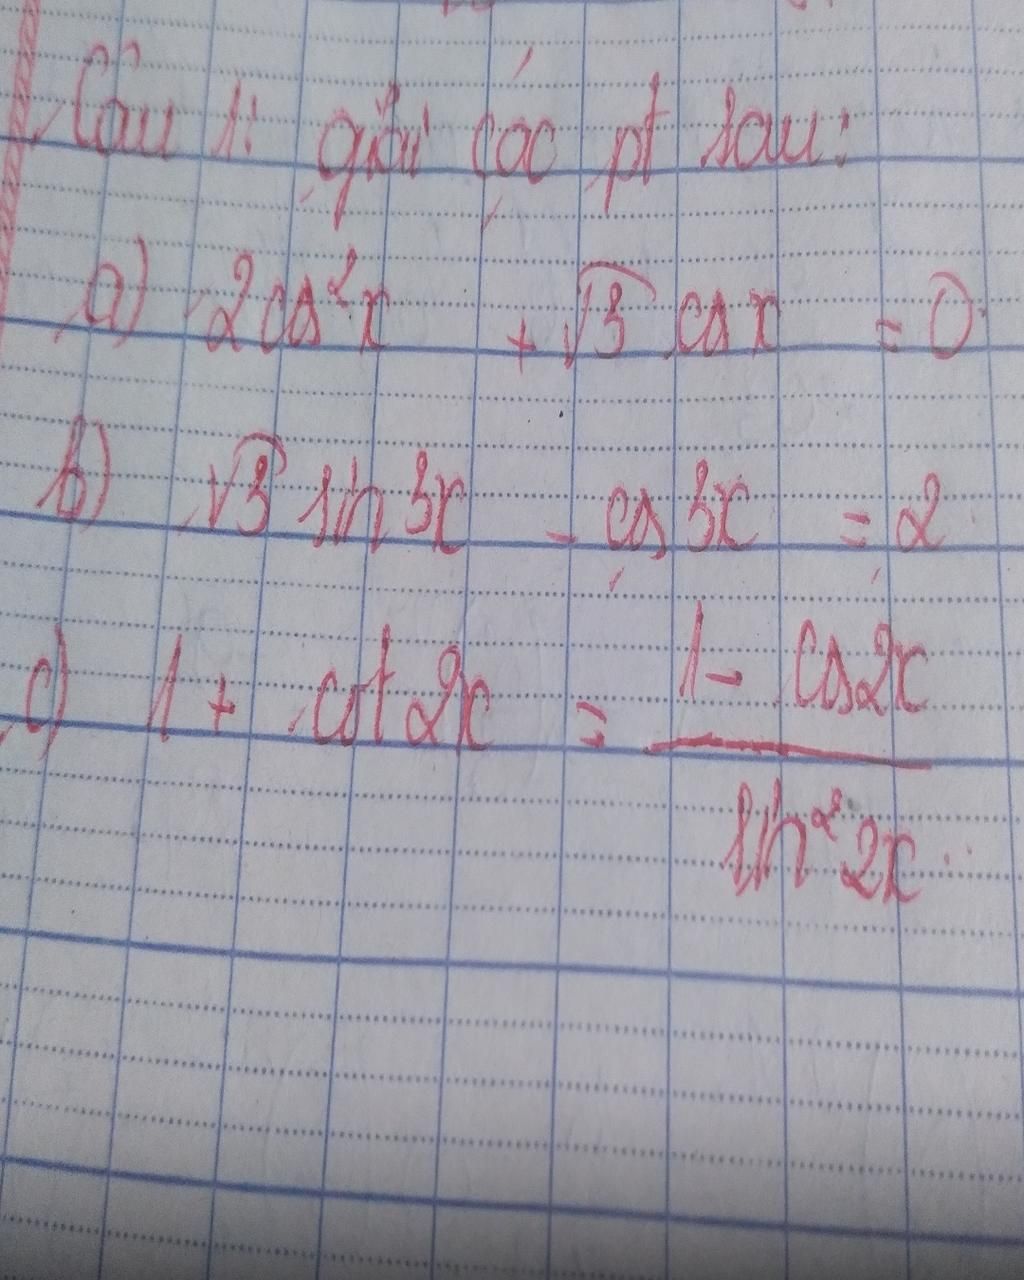 Câu 1: giải các pt sau:
a) 2cos²x + √3 cosx = 0
b) √3 sin3x - cos3x = 2
c) 1 + cot2x = (1 - cos2x)/(sin²2x)